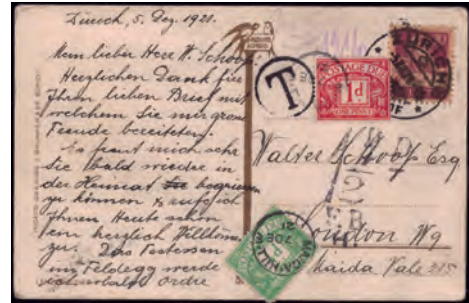 Zürich, 5. Dez. 1921.
Mein lieber Herr W. Schoop
Herzlichen Dank für
Ihren lieben Brief mit
welchem Sie mir gross
Freude bereiteten.
Es freut mich sehr
Sie bald wieder in
der Heimat Sie begrüssen
zu können & rufe ich
Ihnen Heute schon
ein herzlich Willkomm
zu. Das Festessen
im Feldegg werde
Ordre
T
POSTAGE DUE
1D
ONE PENNY
ZÜRICH
Walter Schoop Esq
London W9
Maida Vale 215
MAIDA HILL
7 DE
21